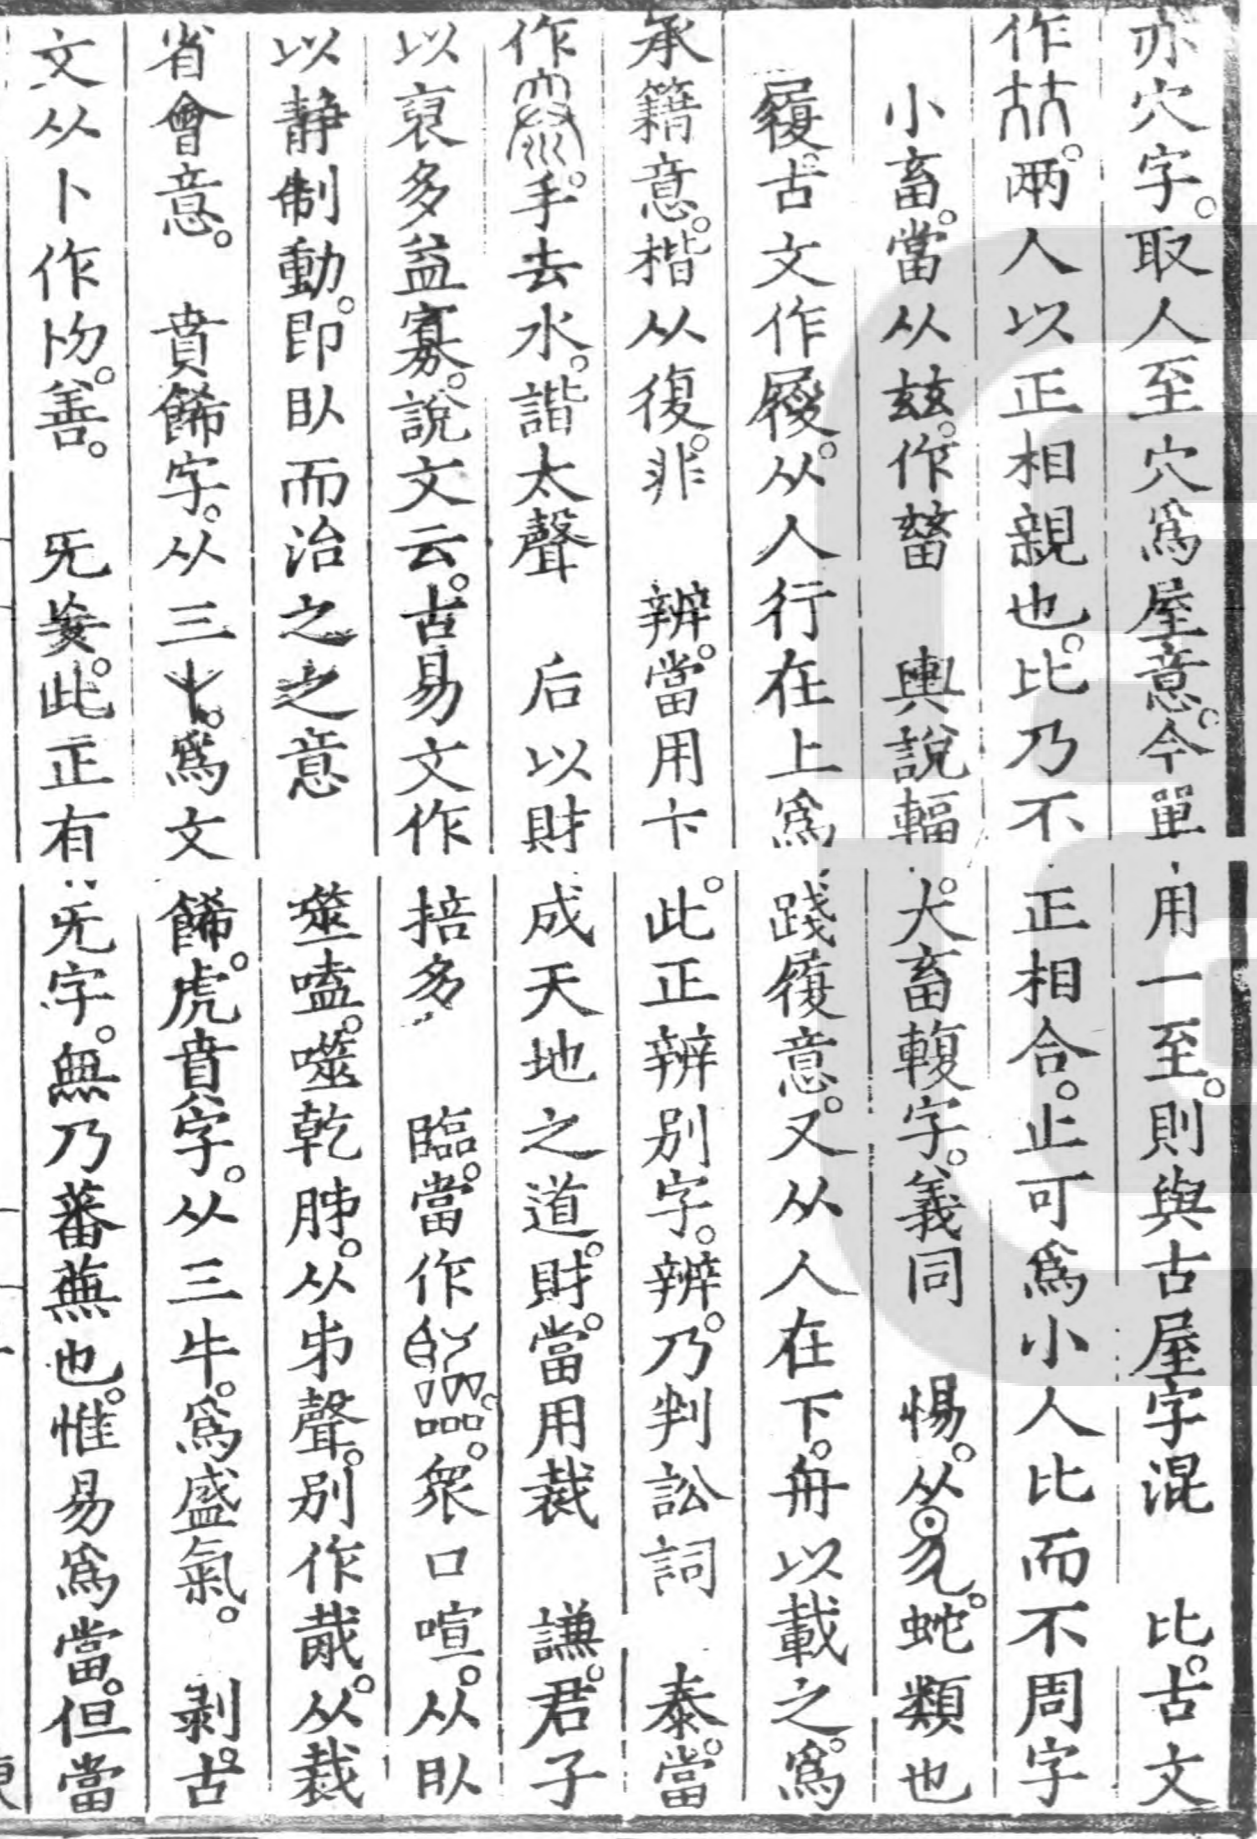 亦穴字。取人至穴爲屋意。今單用一至。則與古屋字混　比。古文
作𠀤。兩人以正相親也。比乃不正相合。止可爲小人比而不周字
小畜。當从玆。作蓄　輿說輻。大畜輹字。義同　惕。从易。蛇類也
履。古文作履。从人行在上爲踐履意。又从人在下。舟以載之。爲
承籍意。楷从復。非　辨。當用卞。此正辨別字。辨。乃判訟詞　泰。當
作。手去水。諧太聲　后以財成天地之道。財。當用裁　謙。君子
以裒多益寡。說文云。古易文作掊多　臨。當作。衆口喧。从臥
以静制動。即臥而治之之意　噬嗑。噬乾胏。从𠂔聲。別作胾。从裁
省會意。　賁餙字。从三屮。爲文餙。虎賁字。从三牛。爲盛氣。　剥。古
文从卜作㓟。善。　旡妄。此正有旡字。無乃蕃蕪也。惟易爲當。但當